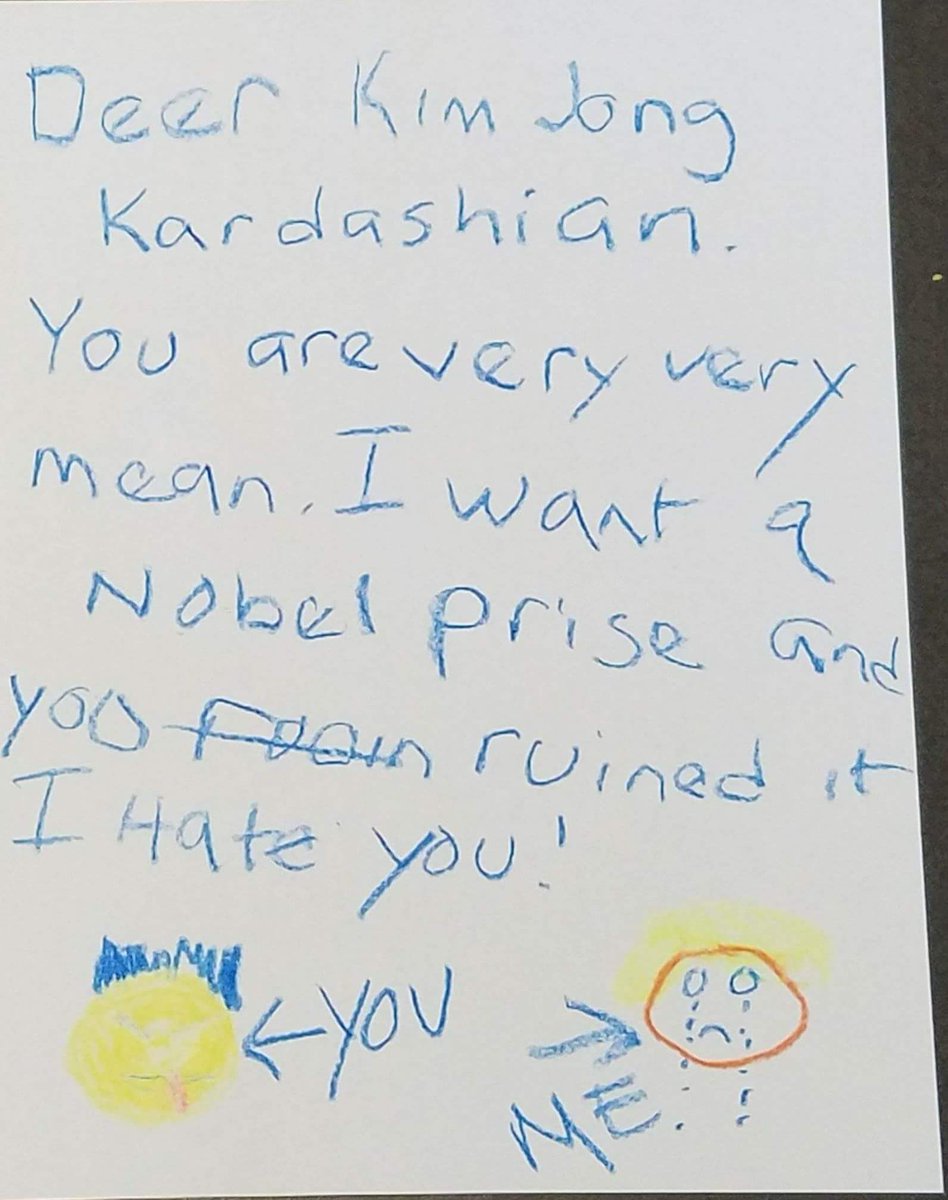 Deer Kim Jong
Kardashian.
You are very very
mean. I want a
Nobel prise and
you ruined it
I Hate you!
←YOU
→
ME.